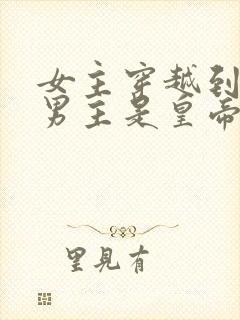 女主穿越到
男主是皇帝
里見有